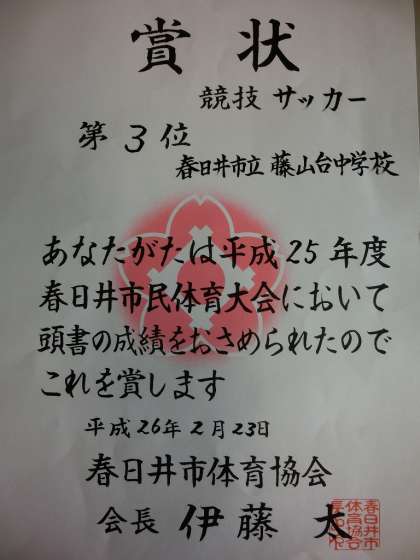 賞状
競技 サッカー
第3位
春日井市立 藤山台中学校
あなたがたは平成25年度
春日井市民体育大会において
頭書の成績をおさめられたので
これを賞します
平成26年2月23日
春日井市体育協会
会長 伊藤 太